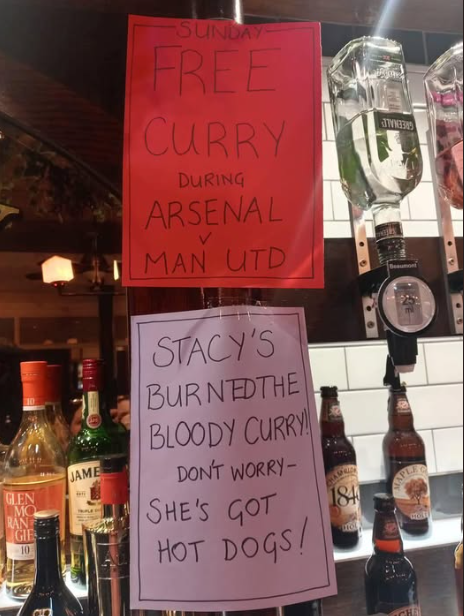 SUNDAY
FREE
CURRY
DURING
ARSENAL
V
MAN UTD
STACY'S
BURNEDTHE
BLOODY CURRY!
DON'T WORRY-
SHE'S GOT
HOT DOGS!
GREENALL'S
Beaumont
25
ml
GLEN
MORAN
GIE
10
JAME
184